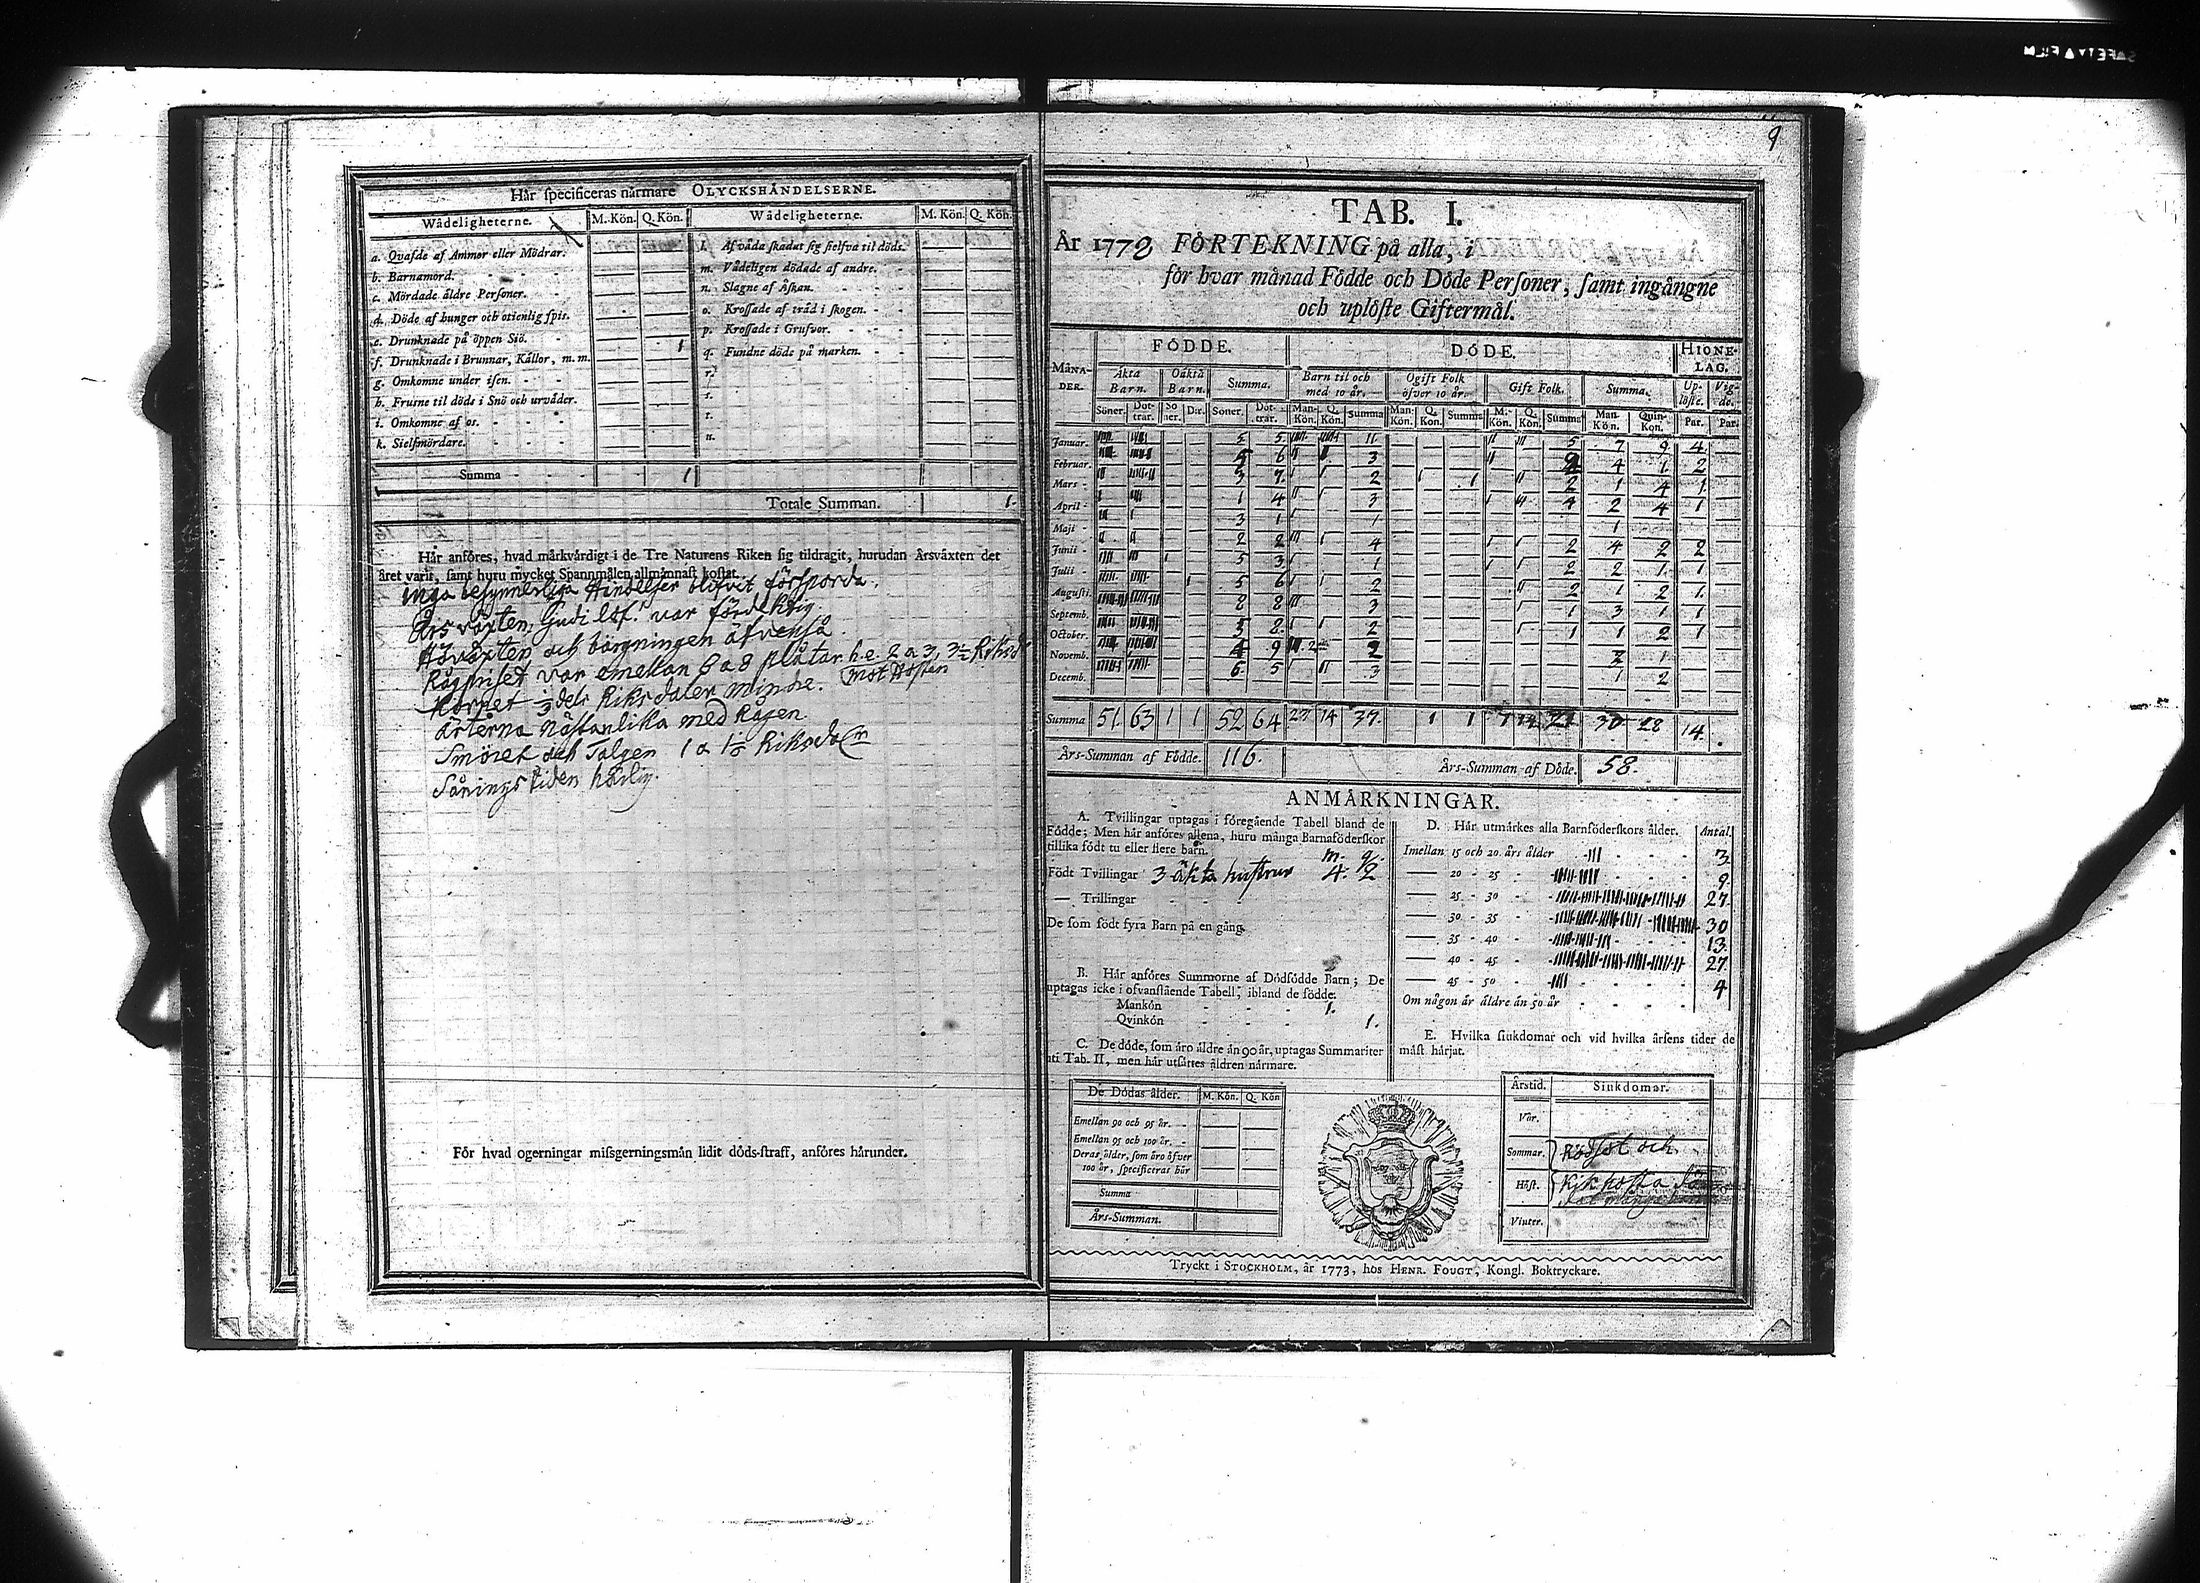 SAFETY FILM
9
Hår specificeras nårmare OLYCKSHÅNDELSERNE.
Wådeligheterne. M. Kön. Q. Kön. Wådeligheterne. M. Kön. Q. Kön.
a. Qvafde af Ammor eller Mödrar.
b. Barnamord.
c. Mördade åldre Personer.
d. Döde af hunger och otienlig spis.
e. Drunknade på öppen Siö.
f. Drunknade i Brunnar, Kållor, m. m. 1
g. Omkomne under isen.
h. Frusne til döds i Snö och urvåder.
i. Omkomne af os.
k. Sielfmördare.
l. Af våda skadat sig sielfva til döds.
m. Vådeligen dödade af andre.
n. Slagne af Åskan.
o. Krossade af tråd i skogen.
p. Krossade i Grufvor.
q. Fundne döde på marken.
r.
s.
t.
u.
Summa 1
Totale Summan. 1.
Hår anföres, hvad mårkvårdigt i de Tre Naturens Riken sig tildragit, hurudan Årsvåxten det
året varit, samt huru mycket Spannmålen allmånnast kostat.
Inga besynnerliga Händelser blifvit försporda.
Årsväxten, Gudi lof! var fördektig.
Höväxten och bärgningen äfvenså
Rågpriset var emellan 6 a 8 plåtar h.e. 2 a 3, 3½ Riksd
Kornet ⅓ dels Riksdaler mindre. mot Hösten
Ärterna nästanlika med Rågen
Smöret och Talgen 1 a 1⅓ Riksdalr
Såningstiden härlig.
För hvad ogerningar missgerningsmån lidit döds-straff, anföres hårunder.
TAB. I.
År 1773 FÖRTEKNING på alla, i
för hvar månad Födde och Döde Personer, samt ingångne
och uplöste Giftermål.
MÅNADER. FÖDDE. DÖDE. HIONELAG.
Åkta Barn. Oåkta Barn. Summa. Barn til och med 10 år. Ogift Folk öfver 10 år. Gift Folk. Summa. Uplöste. Vigde.
Söner. Dottrar. Söner. Dör. Söner. Dottrar. Man-Kön. Q. Kön. Summa Man-Kön. Q. Kön. Summa M. Kön. Q. Kön. Summa Man-Kön. Quin-Kön. Par. Par.
Januar. 5 5 11 5 7 9 4
Februar. 6 3 4 1 2
Mars 3 7 2 1 2 1 4 1
April 1 4 3 4 2 4 1
Maji 3 1 1 1
Junii 2 2 4 2 4 2 2
Julii 5 3 1 2 2 1 1
Augusti. 5 6 2 2 1 2 1
Septemb. 8 8 3 1 3 1 1
October. 5 8 2 1 1 2 1
Novemb. 9 2 1
Decemb. 6 5 3 1 2
Summa 51. 63 1 1 52 64 23 14 37. 1 1 7 13 30 28 14.
Års-Summan af Födde. 116. Års-Summan af Döde. 58.
ANMÅRKNINGAR.
A. Tvillingar uptagas i föregående Tabell bland de
Födde; Men hår anföres allena, huru många Barnaföderskor
tillika födt tu eller flere barn.
m. q.
Födt Tvillingar 3 äkta hustrur 4. 2
— Trillingar
De som födt fyra Barn på en gång.
B. Hår anföres Summorne af Dödfödde Barn; De
uptagas icke i ofvanstående Tabell, ibland de födde.
Mankön 1.
Qvinkön 1.
C. De döde, som åro åldre ån 90 år, uptagas Summariter
uti Tab. II, men hår utsåttes åldren nårmare.
De Dödas ålder. M. Kön. Q. Kön
Emellan 90 och 95 år.
Emellan 95 och 100 år.
Deras ålder, som åro öfver
100 år, specificeras hår
Summa
Års-Summan.
D. Hår utmårkes alla Barnföderskors ålder. Antal.
Imellan 15 och 20. års ålder 3
— 20 - 25 9
— 25 - 30 27
— 30 - 35 30
— 35 - 40 13
— 40 - 45 27
— 45 - 50 4
Om någon år åldre ån 50 år
E. Hvilka siukdomar och vid hvilka årsens tider de
måst hårjat.
Årstid. Siukdomar.
Vår.
Sommar. Rödsot och
Höst. Kikhosta
Vinter.
Tryckt i STOCKHOLM, år 1773, hos HENR. FOUGT, Kongl. Boktryckare.